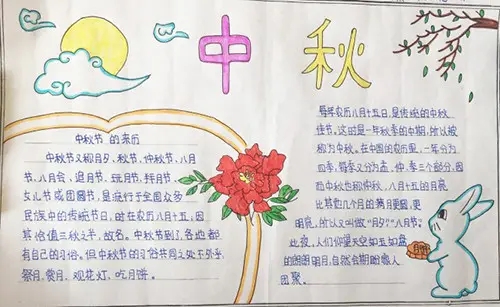 中秋
中秋节 的来历
中秋节又称月夕、秋节、仲秋节、八月
节、八月会、追月节、玩月节、拜月节、
女儿节或团圆节，是流行于全国众多
民族中的传统节日，时在农历八月十五，因
其恰值三秋之半，故名。中秋节到了，各地都
有自己的习俗。但中秋节的习俗共同之处不外乎
祭月、赏月、观花灯、吃月饼。
每年农历八月十五日，是传统的中秋
佳节。这时是一年秋季的中期，所以被
称为中秋。在中国的农历里，一年分为
四季，每季又分为孟、仲、季三个部分，因
而中秋也称仲秋。八月十五的月亮
比其他几个月的满月更圆，更
明亮，所以又叫做“月夕”“八月节”。
此夜，人们仰望天空如玉如盘
的朗朗明月，自然会期盼家人
团聚。